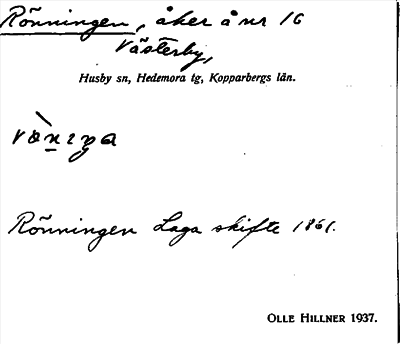 Rönningen, åker å nr 16
Västerby,
Husby sn, Hedemora tg, Kopparbergs län.
Rönningen Laga skifte 1861.
OLLE HILLNER 1937.